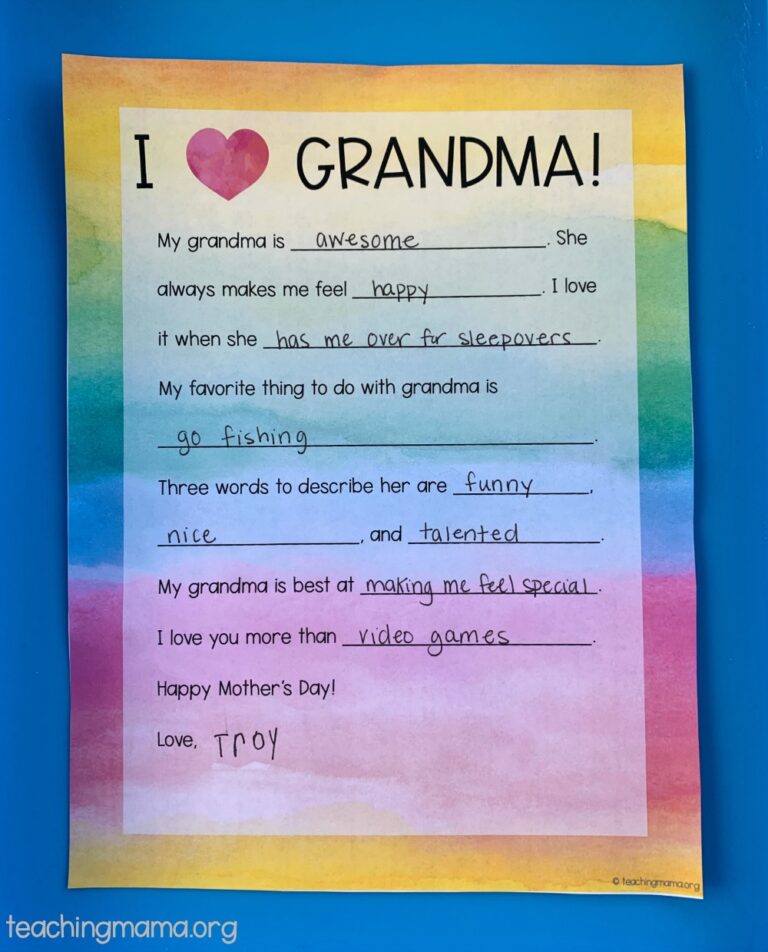 I ❤ GRANDMA!
My grandma is awesome. She
always makes me feel happy. I love
it when she has me over for sleepovers.
My favorite thing to do with grandma is
go fishing.
Three words to describe her are funny,
nice, and talented.
My grandma is best at making me feel special.
I love you more than video games.
Happy Mother's Day!
Love, Troy
© teachingmama.org
teachingmama.org